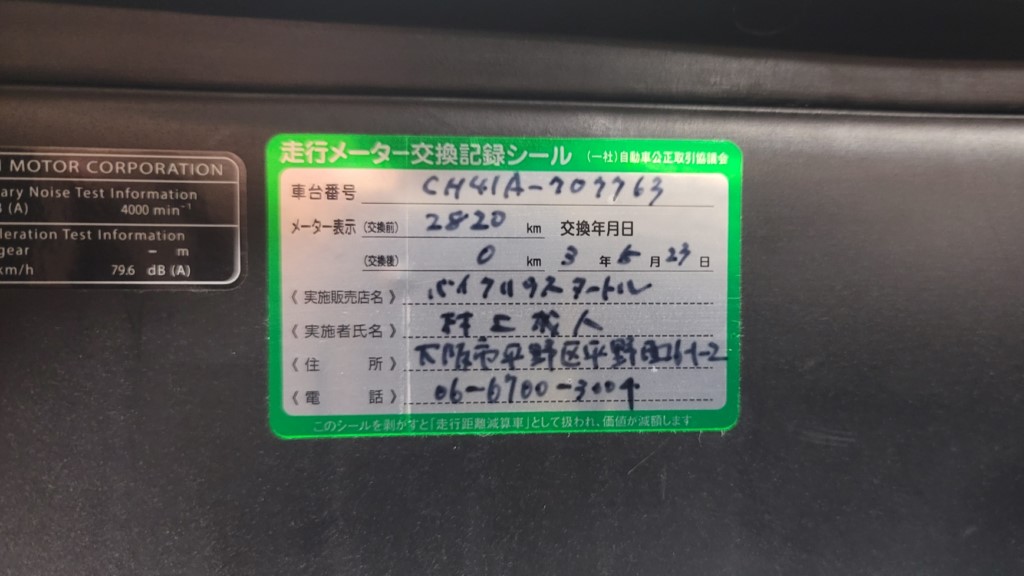 MOTOR CORPORATION
ary Noise Test Information
(A) 4000 min⁻¹
leration Test Information
gear – m
km/h 79.6 dB (A)
走行メーター交換記録シール (一社)自動車公正取引協議会
車台番号 CH41A-707763
メーター表示 (交換前) 2820 km 交換年月日
(交換後) 0 km 3 年 5 月 23 日
《 実施販売店名 》
《 実施者氏名 》 村上成人
《 住 所 》 大阪市平野区平野町
《 電 話 》 06-6700-3004
このシールを剥がすと「走行距離減算車」として扱われ、価値が減額します